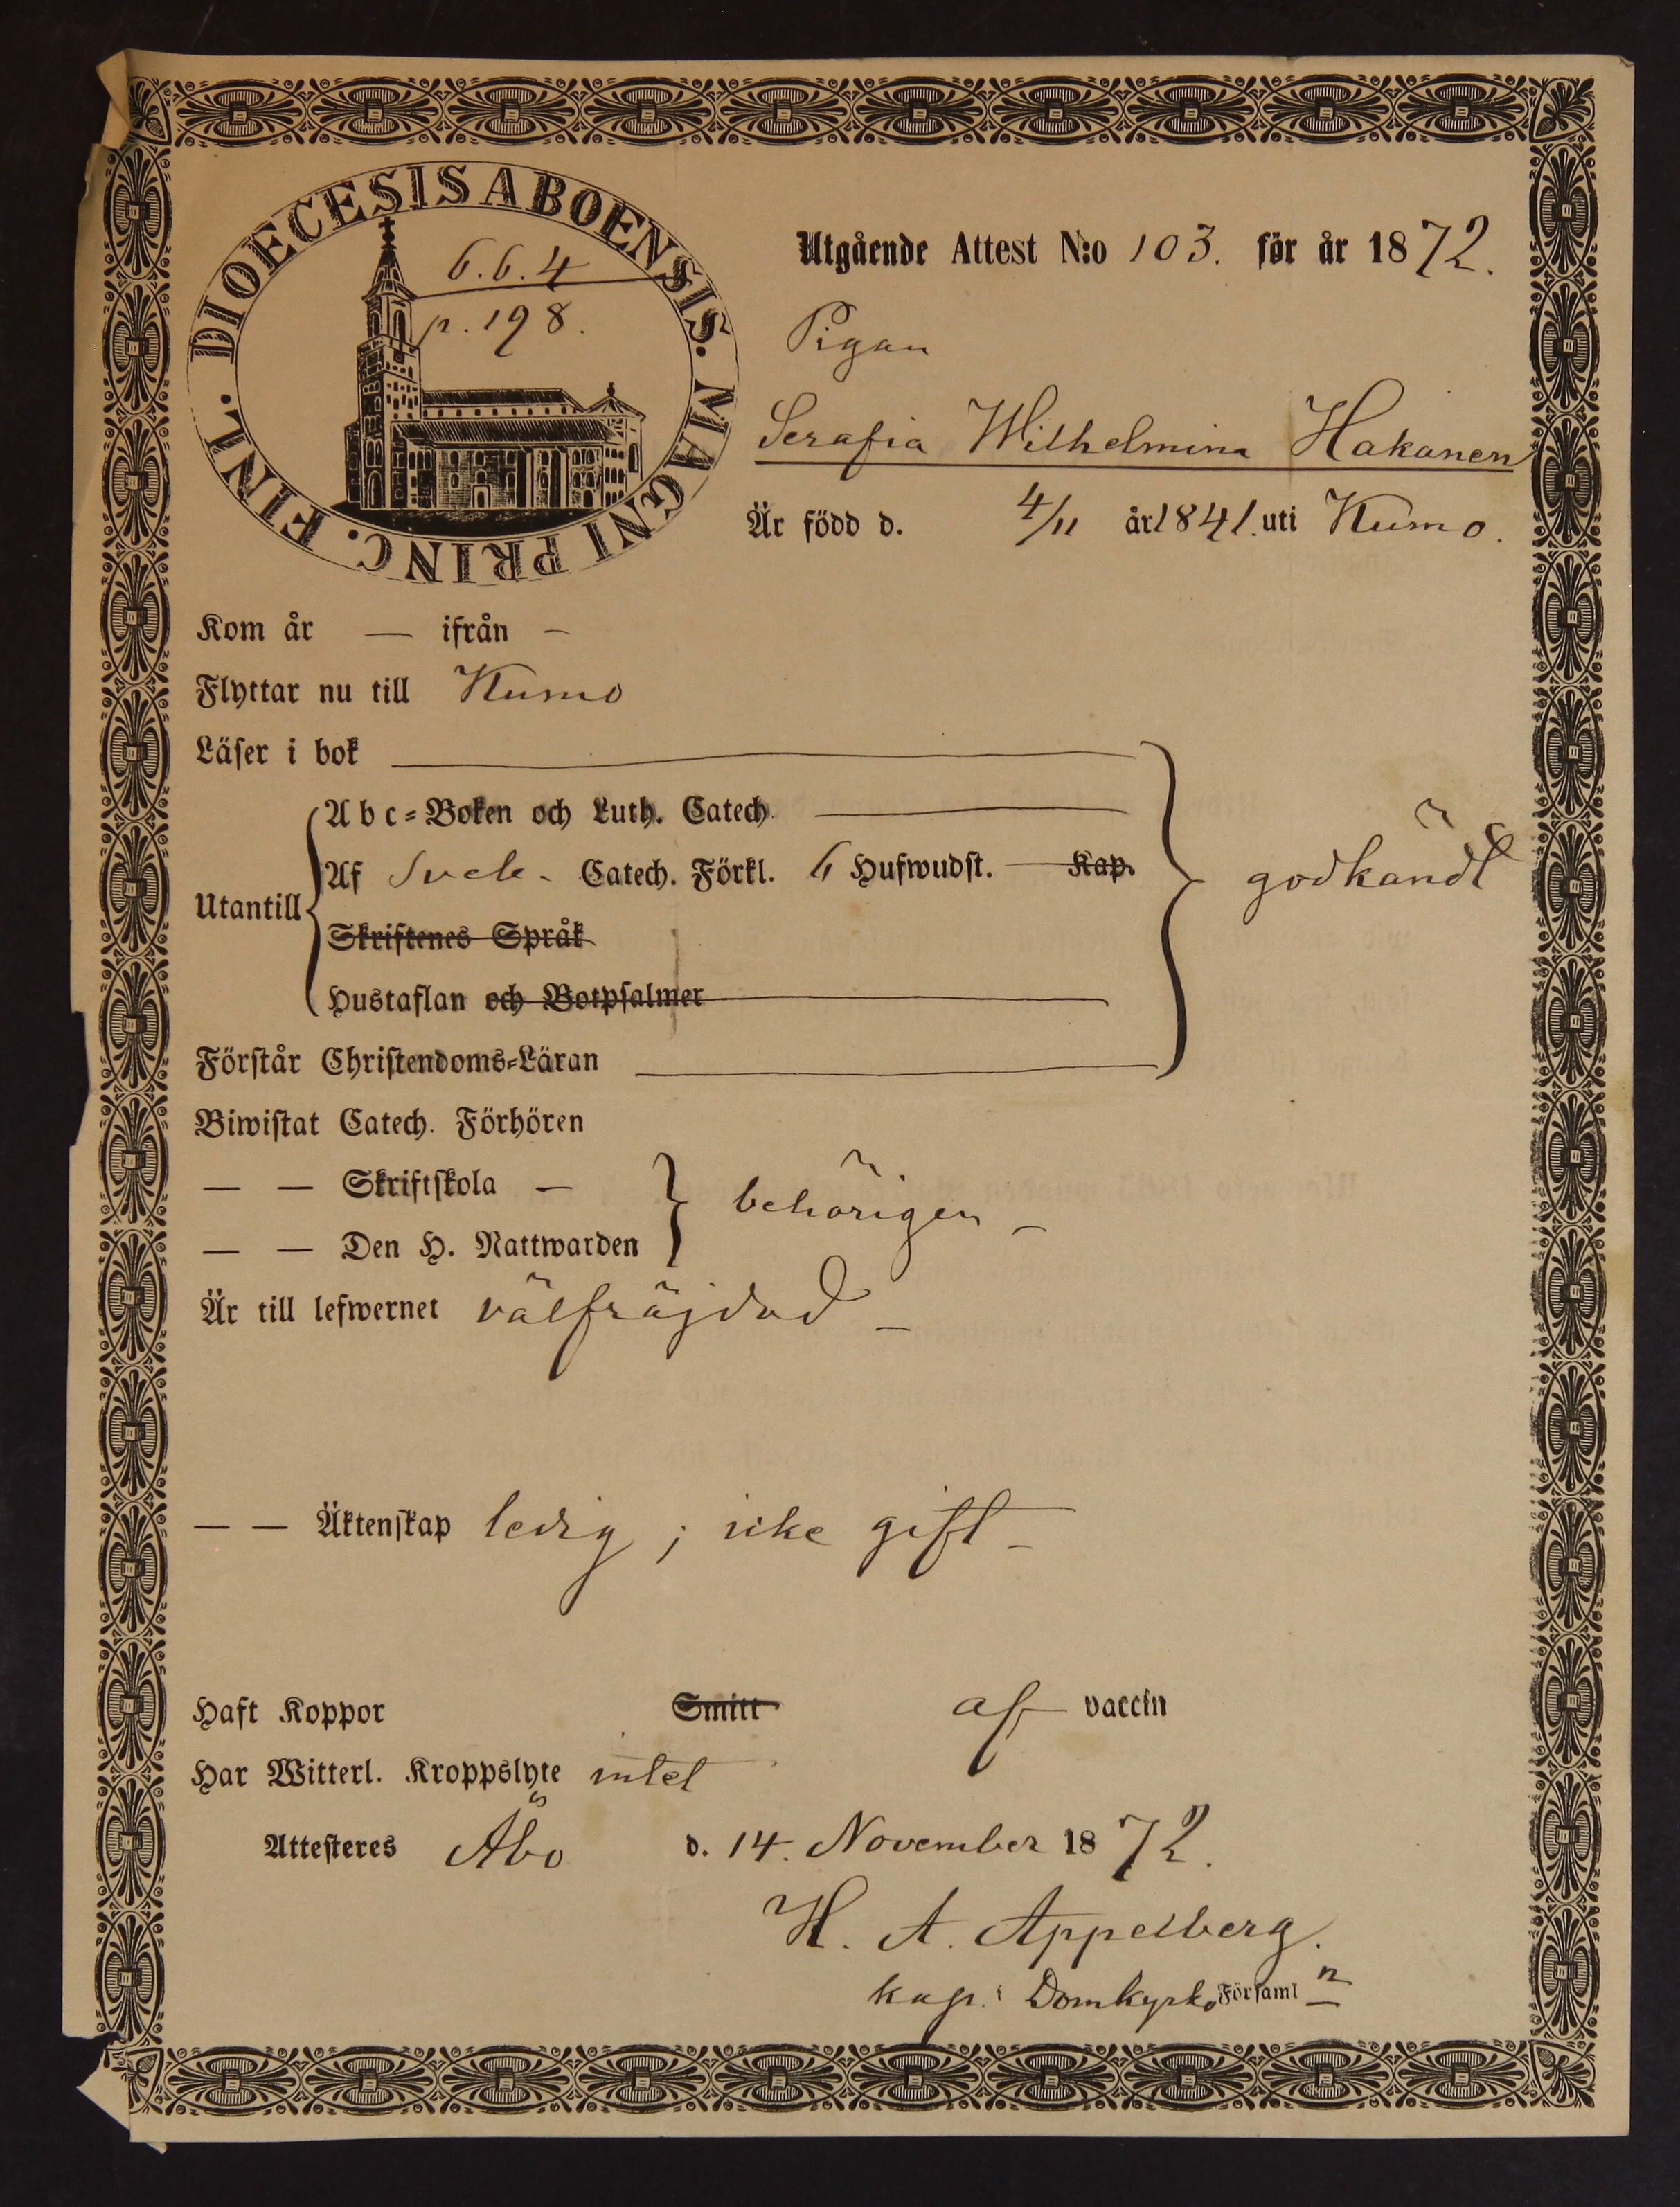 DIOECESIS ABOENSIS. MAGNI PRINC. FINL.
6.6.4
p. 198.
Utgående Attest N:o 103. för år 1872.
Pigan
Serafia Wilhelmina Hakanen
Är född d. 4/11 år 1841. uti Kumo.
Kom år — ifrån –
Flyttar nu till Kumo
Läser i bok
Utantill
Abc=Boken och Luth. Catech.
Af Sveb. Catech. Förkl. 6 Hufwudst. Kap.
Skriftenes Språk
Hustaflan och Botpsalmer
Förstår Christendoms=Läran
godkändt
Biwistat Catech. Förhören
— — Skriftskola —
— — Den H. Nattwarden
behörigen –
Är till lefwernet välfräjdad –
— — Äktenskap ledig ; icke gift –
Haft Koppor Smitt af vaccin
Har Witterl. Kroppslyte intet
Attesteres Åbo d. 14. November 1872.
H. A. Appelberg.
kap. i Domkyrko Församl n